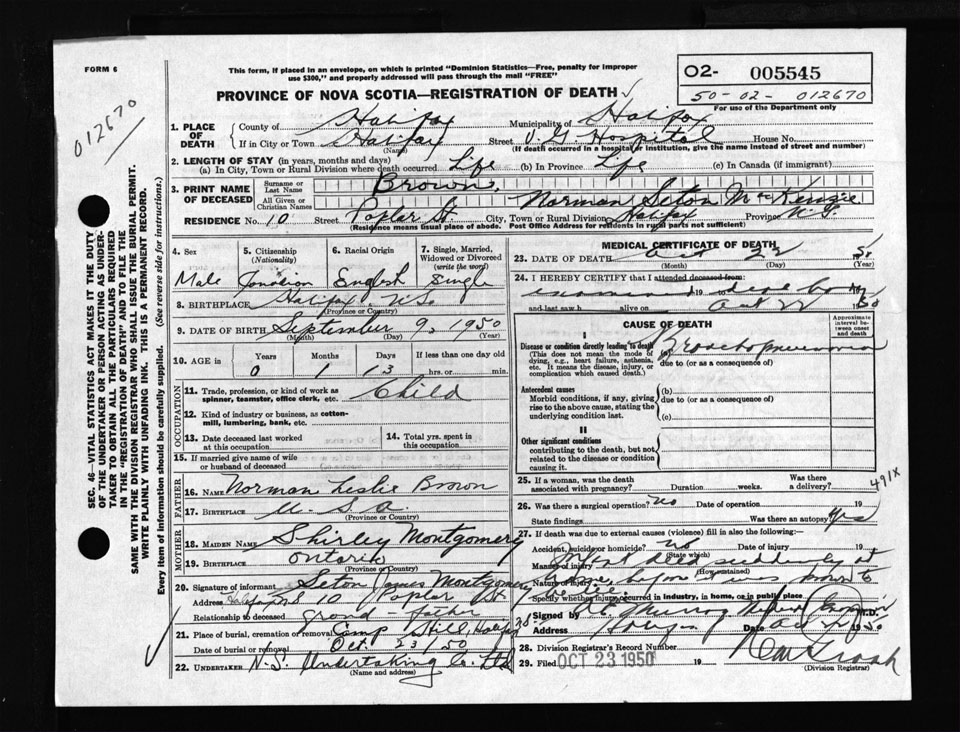 FORM 6
This form, if placed in an envelope, on which is printed "Dominion Statistics—Free, penalty for improper
use $300," and properly addressed will pass through the mail "FREE"
PROVINCE OF NOVA SCOTIA—REGISTRATION OF DEATH
02- 005545
50-02-012670
For use of the Department only
012670
SEC. 46—VITAL STATISTICS ACT MAKES IT THE DUTY
OF THE UNDERTAKER OR PERSON ACTING AS UNDER-
TAKER TO OBTAIN ALL THE PARTICULARS REQUIRED
IN THE "REGISTRATION OF DEATH" AND TO FILE THE
SAME WITH THE DIVISION REGISTRAR WHO SHALL ISSUE THE BURIAL PERMIT.
WRITE PLAINLY WITH UNFADING INK. THIS IS A PERMANENT RECORD.
Every item of information should be carefully supplied. (See reverse side for instructions.)
1. PLACE OF DEATH County of Halifax Municipality of Halifax
If in City or Town Halifax Street V.G. Hospital House No.
(Name) (If death occurred in a hospital or institution, give the name instead of street and number)
2. LENGTH OF STAY (in years, months and days)
(a) In City, Town or Rural Division where death occurred Life (b) In Province Life (c) In Canada (if immigrant)
3. PRINT NAME OF DECEASED Surname or Last Name Brown,
All Given or Christian Names Norman Seton McKenzie
RESIDENCE No. 10 Street Poplar St. City, Town or Rural Division Halifax Province N.S.
(Residence means usual place of abode. Post Office Address for residents in rural parts not sufficient)
4. Sex 5. Citizenship (Nationality) 6. Racial Origin 7. Single, Married, Widowed or Divorced (write the word)
Male Canadian English Single
8. BIRTHPLACE Halifax N.S.
(Province or Country)
9. DATE OF BIRTH September 9, 1950
(Month) (Day) (Year)
10. AGE in Years Months Days If less than one day old
0 1 13 hrs. or min.
OCCUPATION
11. Trade, profession, or kind of work as spinner, teamster, office clerk, etc. Child
12. Kind of industry or business, as cotton-mill, lumbering, bank, etc.
13. Date deceased last worked at this occupation
14. Total yrs. spent in this occupation
15. If married give name of wife or husband of deceased
FATHER
16. NAME Norman Leslie Brown
17. BIRTHPLACE U.S.A.
(Province or Country)
MOTHER
18. MAIDEN NAME Shirley Montgomery
19. BIRTHPLACE Ontario
(Province or Country)
20. Signature of informant Seton James Montgomery
Address Halifax N.S 10 Poplar St
Relationship to deceased grand-father
21. Place of burial, cremation or removal Camp Hill, Halifax
Date of burial or removal Oct. 23/50
22. UNDERTAKER N.S. Undertaking Co. Ltd
(Name and address)
MEDICAL CERTIFICATE OF DEATH
23. DATE OF DEATH Oct 22 50
(Month) (Day) (Year)
24. I HEREBY CERTIFY that I attended deceased from:
19 to
and last saw h alive on Oct 22 50
CAUSE OF DEATH
Approximate interval between onset and death
I
Disease or condition directly leading to death
(This does not mean the mode of dying, e.g., heart failure, asthenia, etc. It means the disease, injury, or complication which caused death.)
(a) Bronchopneumonia
due to (or as a consequence of)
Antecedent causes
Morbid conditions, if any, giving rise to the above cause, stating the underlying condition last.
(b)
due to (or as a consequence of)
(c)
II
Other significant conditions
contributing to the death, but not related to the disease or condition causing it.
25. If a woman, was the death associated with pregnancy? Duration weeks. Was there a delivery?
491X
26. Was there a surgical operation? no Date of operation 19
State findings Was there an autopsy? yes
27. If death was due to external causes (violence) fill in also the following:
Accident, suicide or homicide? no Date of injury 19
(State which)
Manner of injury
(How sustained)
Nature of injury
Specify whether injury occurred in industry, in home, or in public place
Signed by Murray M.D.
Address Halifax Date Oct 22 1950
28. Division Registrar's Record Number
29. Filed OCT 23 1950 19
(Division Registrar)